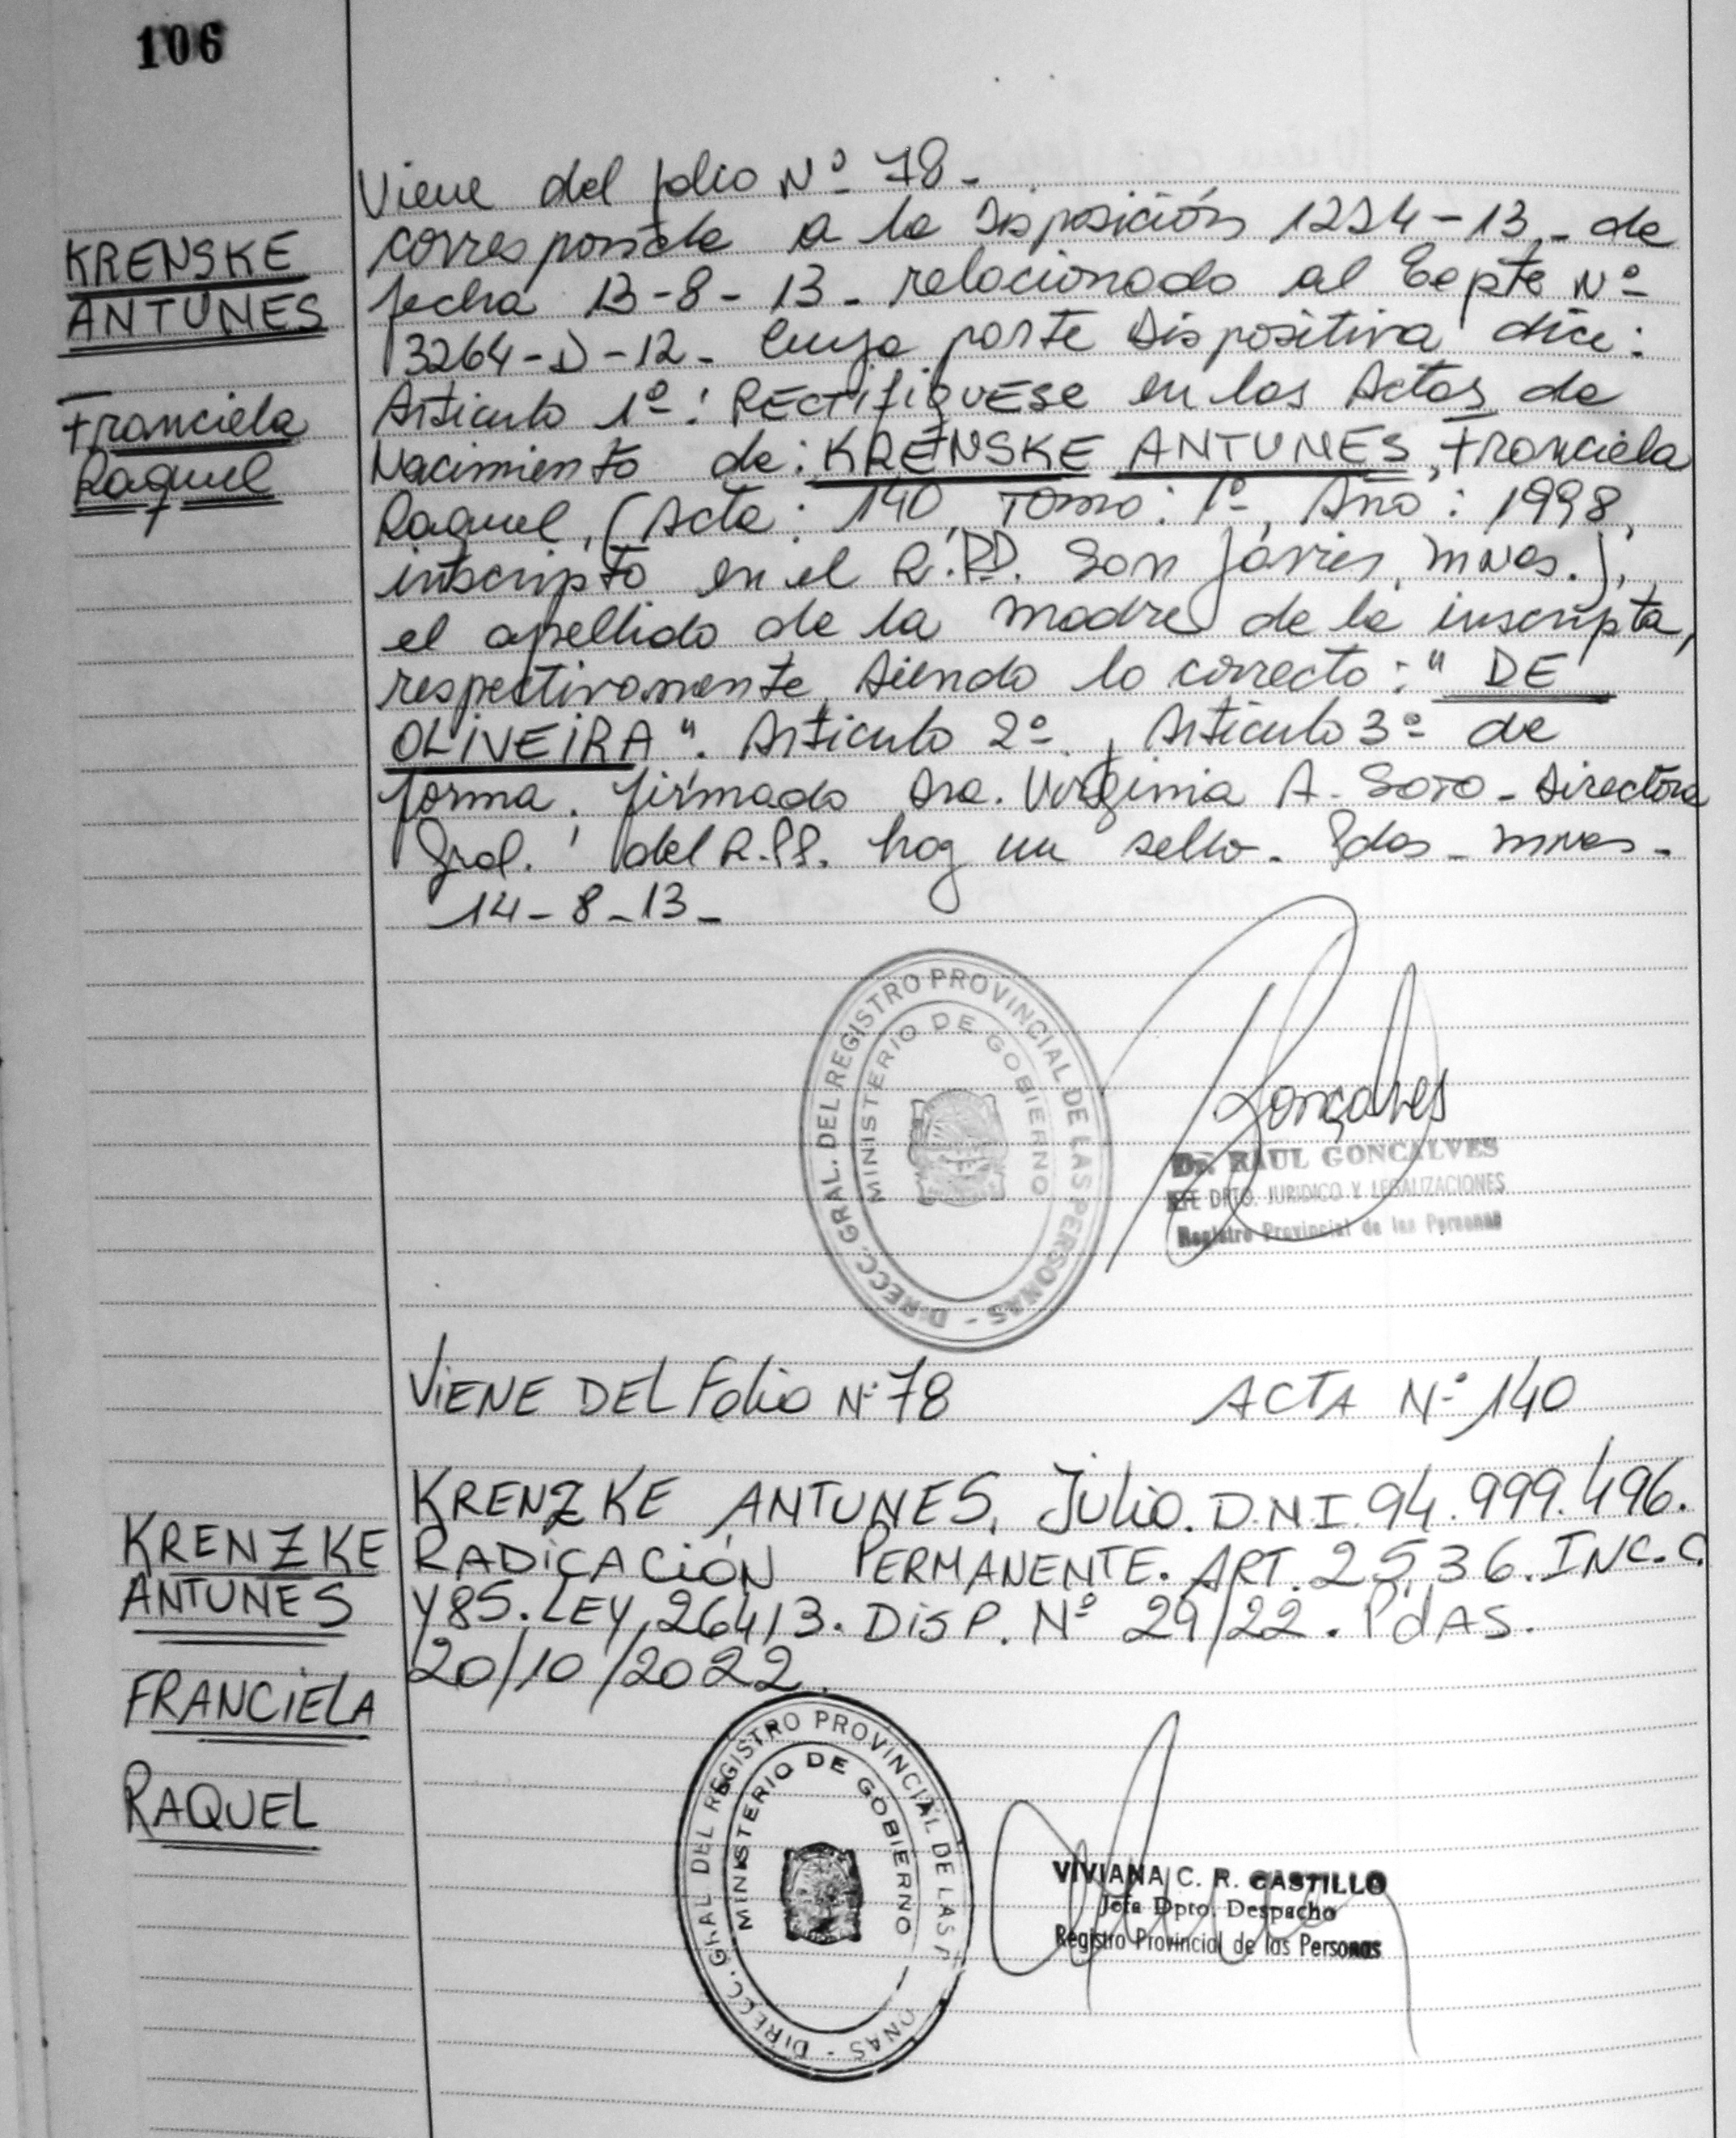 106
Viene del folio Nº 78-
corresponde a la Disposición 1234-13,- de
KRENSKE
ANTUNES
fecha 13-8-13- relacionado al Eepte Nº
3264-D-12- Cuya parte Dispositiva dice:
Franciela
Raquel
Articulo 1º: RECTIFIQUESE en las Actas de
Nacimiento de: KRENSKE ANTUNES, Franciela
Raquel, (Acta: 140, Tomo: 1º, Año: 1998,
inscripto en el R.PP. San Javier, mnes.),
el apellido de la madre de la inscripta,
respectivamente, siendo lo correcto: "DE
OLIVEIRA". Articulo 2º, Articulo 3º de
forma. firmado Dra. Virginia A. Soto - Directora
Gral. del R.PP. hay un sello. Pdas - mnes -
14-8-13-
DIRECC. GRAL. DEL REGISTRO PROVINCIAL DE LAS PERSONAS -
MINISTERIO DE GOBIERNO
Gonçalves
Dr. RAUL GONCALVES
JEFE DPTO. JURIDICO Y LEGALIZACIONES
Registro Provincial de las Personas
VIENE DEL Folio Nº 78 ACTA Nº 140
KRENZKE ANTUNES, Julio. D.N.I. 94.999.496.
KRENZKE
ANTUNES
RADICACIÓN PERMANENTE. ART. 25,36. INC. C
Y 85. LEY 26413. DISP. Nº 29/22. PdAS.
20/10/2022.
FRANCIELA
RAQUEL
DIRECC. GRAL DEL REGISTRO PROVINCIAL DE LAS P ONAS -
MINISTERIO DE GOBIERNO
VIVIANA C. R. CASTILLO
Jefe Dpto. Despacho
Registro Provincial de las Personas